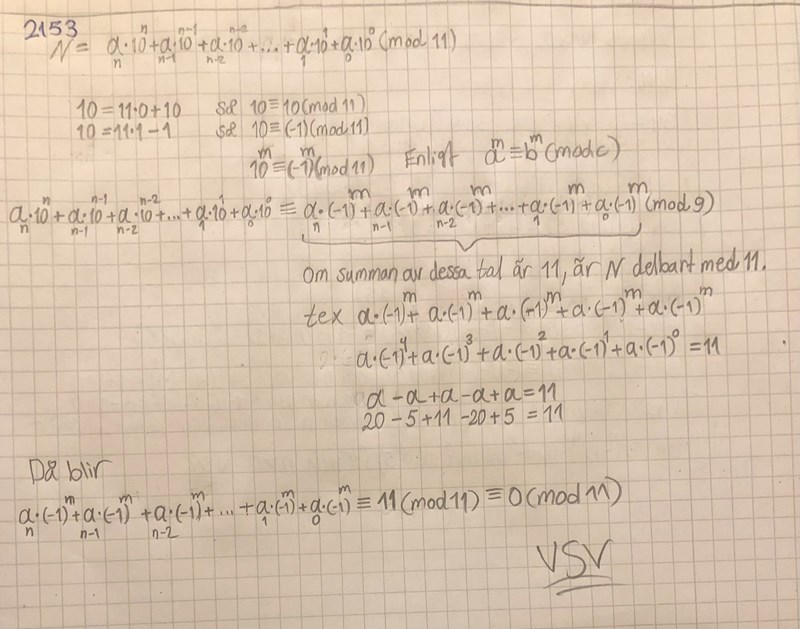 2153
N = aₙ·10ⁿ + aₙ₋₁·10ⁿ⁻¹ + aₙ₋₂·10ⁿ⁻² + ... + a₁·10¹ + a₀·10⁰ (mod 11)
10 = 11·0 + 10 så 10 ≡ 10 (mod 11)
10 = 11·1 - 1 så 10 ≡ (-1) (mod 11)
10ᵐ ≡ (-1)ᵐ (mod 11) Enligt aᵐ ≡ bᵐ (mod c)
aₙ·10ⁿ + aₙ₋₁·10ⁿ⁻¹ + aₙ₋₂·10ⁿ⁻² + ... + a₁·10¹ + a₀·10⁰ ≡ aₙ·(-1)ᵐ + aₙ₋₁·(-1)ᵐ + aₙ₋₂·(-1)ᵐ + ... + a₁·(-1)ᵐ + a₀·(-1)ᵐ (mod 9)
Om summan av dessa tal är 11, är N delbart med 11.
tex a·(-1)ᵐ + a·(-1)ᵐ + a·(-1)ᵐ + a·(-1)ᵐ + a·(-1)ᵐ
a·(-1)⁴ + a·(-1)³ + a·(-1)² + a·(-1)¹ + a·(-1)⁰ = 11
a - a + a - a + a = 11
20 - 5 + 11 - 20 + 5 = 11
Då blir
aₙ·(-1)ᵐ + aₙ₋₁·(-1)ᵐ + aₙ₋₂·(-1)ᵐ + ... + a₁·(-1)ᵐ + a₀·(-1)ᵐ ≡ 11 (mod 11) ≡ 0 (mod 11)
VSV